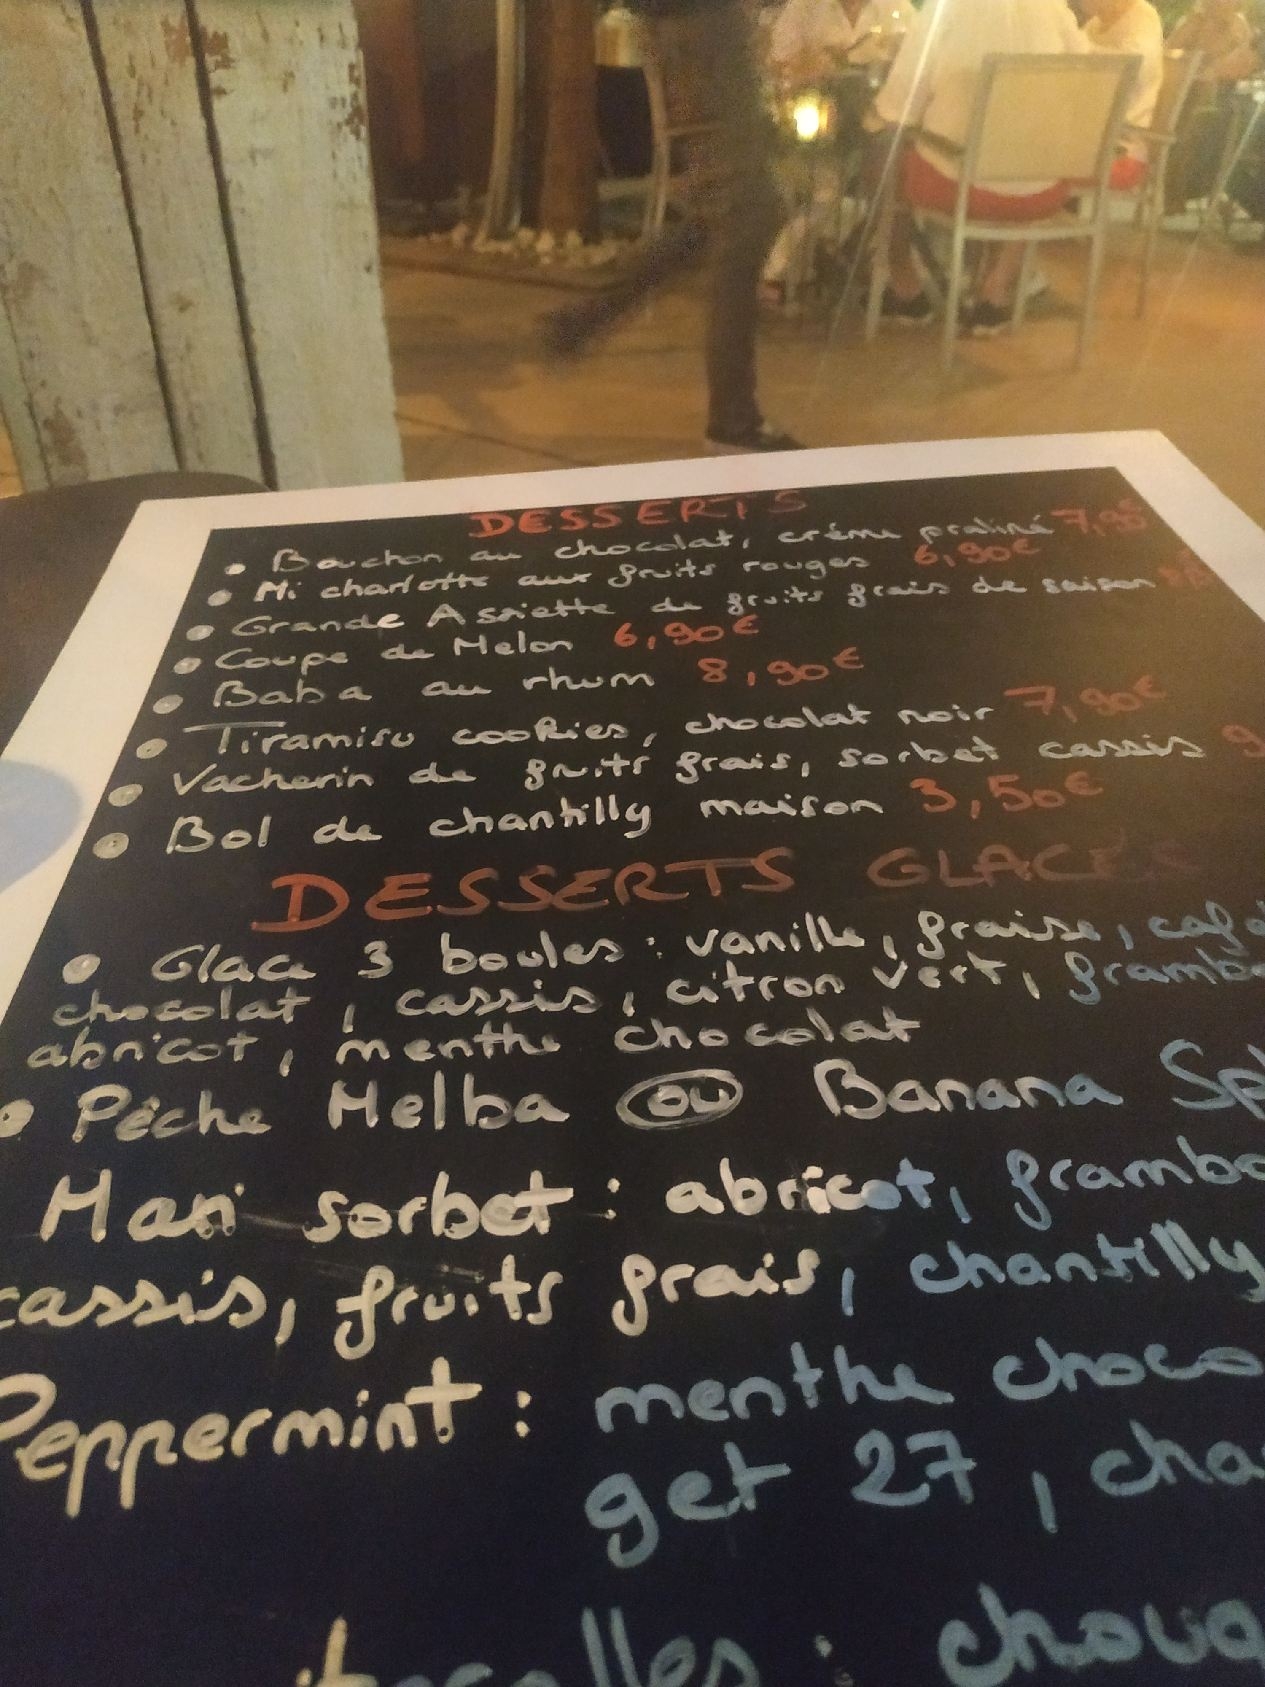 DESSERTS
• Bouchon au chocolat, crème praliné 7,90€
• Mi charlotte aux fruits rouges 6,90€
• Grande Assiette de fruits frais de saison
• Coupe de Melon 6,90€
• Baba au rhum 8,90€
• Tiramisu cookies, chocolat noir 7,90€
• Vacherin de fruits frais, sorbet cassis 9
• Bol de chantilly maison 3,50€
DESSERTS GLACES
• Glace 3 boules : vanille, fraise, café
chocolat, cassis, citron vert, frambo
abricot, menthe chocolat
• Pêche Melba ou Banana Spl
sorbet : abricot, frambo
cassis, fruits frais, chantilly
Peppermint : menthe choco
get 27, cha